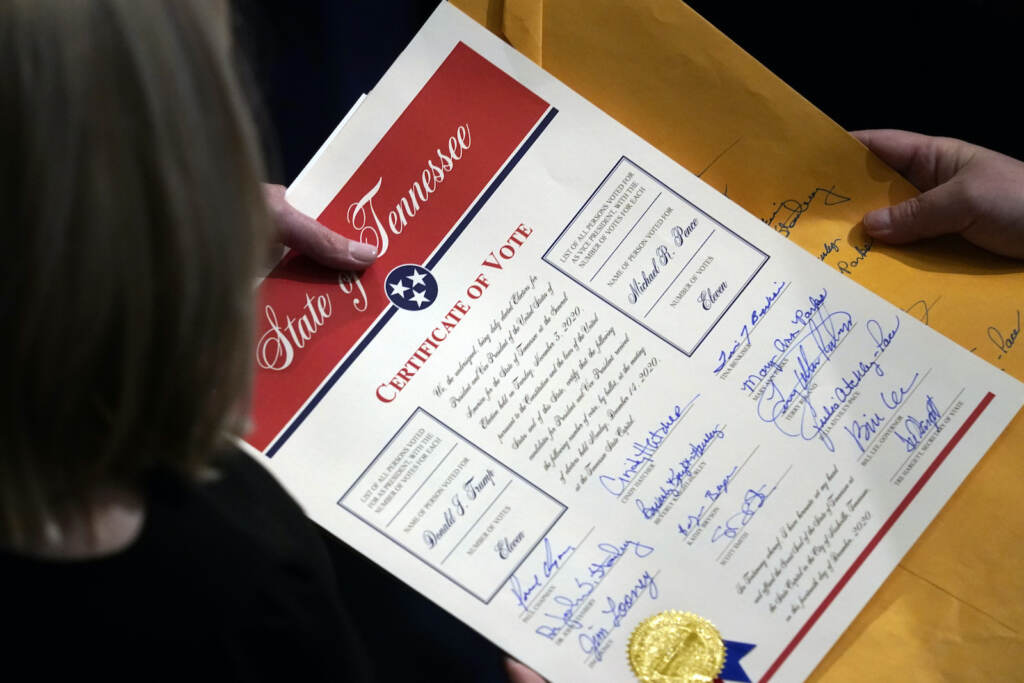 State of Tennessee
CERTIFICATE OF VOTE
We, the undersigned, being duly elected Electors for
President and Vice President of the United States of
America for the State of Tennessee at the General
Election held on Tuesday, November 3, 2020,
pursuant to the Constitution and the laws of the United
States and of this State, certify that the following
candidates for President and Vice President received
the following number of votes, by ballot, at the meeting
of electors held Monday, December 14, 2020,
at the Tennessee State Capitol.
LIST OF ALL PERSONS VOTED
FOR AS PRESIDENT, WITH THE
NUMBER OF VOTES FOR EACH
NAME OF PERSON VOTED FOR
Donald J. Trump
NUMBER OF VOTES
Eleven
LIST OF ALL PERSONS VOTED FOR
AS VICE PRESIDENT, WITH THE
NUMBER OF VOTES FOR EACH
NAME OF PERSON VOTED FOR
Michael R. Pence
NUMBER OF VOTES
Eleven
PAUL CHAPMAN
Dr. John L. Stanley
Jim Looney
Cindy Hatcher
CINDY HATCHER
Beverly Knight-Hurley
KATHY BRYSON
SCOTT SMITH
Tina
Mary Ann Parks
TERRY
Julia Atchley-Pace
JULIA ATCHLEY-PACE
Bill Lee
BILL LEE, GOVERNOR
TRE HARGETT, SECRETARY OF STATE
In Testimony whereof, I have hereunto set my hand
and affixed the Great Seal of the State of Tennessee at
the State Capitol in the City of Nashville, Tennessee,
on the fourteenth day of December, 2020